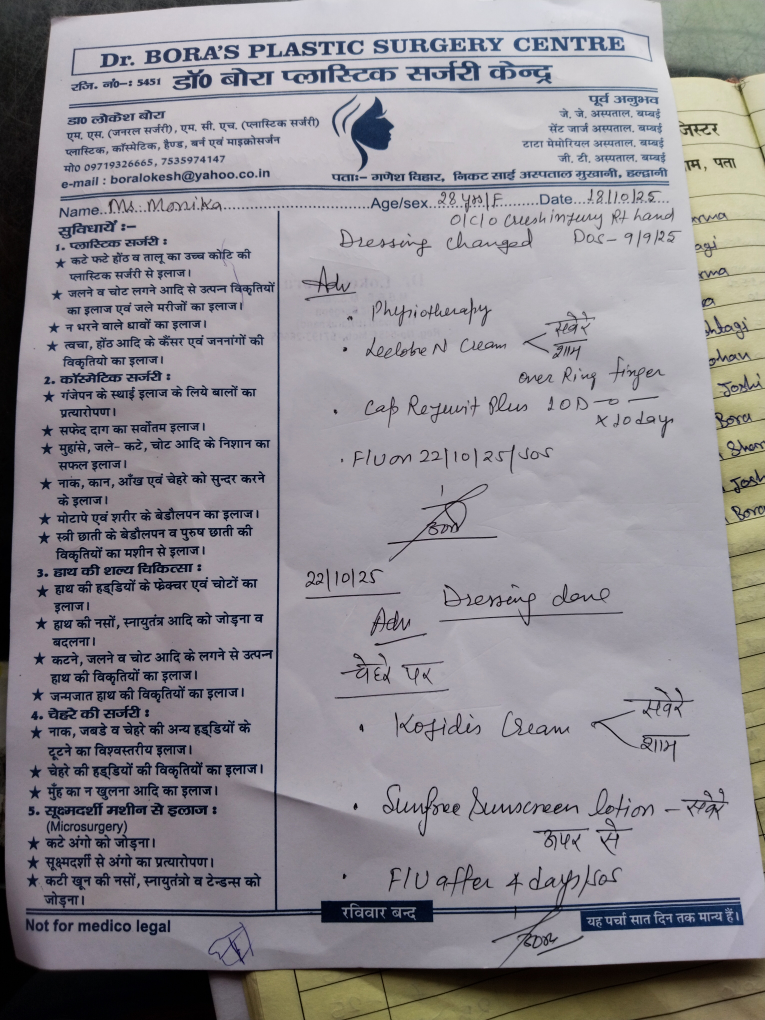 Dr. BORA'S PLASTIC SURGERY CENTRE
रजि. नं०-: 5451 डॉ० बोरा प्लास्टिक सर्जरी केन्द्र
डा० लोकेश बोरा
एम. एस. (जनरल सर्जरी), एम. सी. एच. (प्लास्टिक सर्जरी)
प्लास्टिक, कॉस्मेटिक, हैण्ड, बर्न एवं माइक्रोसर्जन
मो० 09719326665, 7535974147
e-mail : boralokesh@yahoo.co.in
पूर्व अनुभव
जे. जे. अस्पताल, बम्बई
सेंट जार्ज अस्पताल, बम्बई
टाटा मेमोरियल अस्पताल, बम्बई
जी. टी. अस्पताल, बम्बई
पताः- गणेश विहार, निकट साई अस्पताल मुखानी, हल्द्वानी
Name Ms. Monika Age/sex 28 yrs/F Date 18/10/25
सुविधायें :-
1. प्लास्टिक सर्जरी :
★ कटे फटे होंठ व तालू का उच्च कोटि की
प्लास्टिक सर्जरी से इलाज।
★ जलने व चोट लगने आदि से उत्पन्न विकृतियों
का इलाज एवं जले मरीजों का इलाज।
★ न भरने वाले घावों का इलाज।
★ त्वचा, होंठ आदि के कैंसर एवं जननांगों की
विकृतियो का इलाज।
2. कॉस्मेटिक सर्जरी :
★ गंजेपन के स्थाई इलाज के लिये बालों का
प्रत्यारोपण।
★ सफेद दाग का सर्वोतम इलाज।
★ मुहांसे, जले- कटे, चोट आदि के निशान का
सफल इलाज।
★ नाक, कान, आँख एवं चेहरे को सुन्दर करने
के इलाज।
★ मोटापे एवं शरीर के बेडौलपन का इलाज।
★ स्त्री छाती के बेडौलपन व पुरुष छाती की
विकृतियों का मशीन से इलाज।
3. हाथ की शल्य चिकित्सा :
★ हाथ की हड्डियों के फ्रेक्चर एवं चोटों का
इलाज।
★ हाथ की नसों, स्नायुतंत्र आदि को जोड़ना व
बदलना।
★ कटने, जलने व चोट आदि के लगने से उत्पन्न
हाथ की विकृतियों का इलाज।
★ जन्मजात हाथ की विकृतियों का इलाज।
4. चेहरे की सर्जरी :
★ नाक, जबडे व चेहरे की अन्य हड्डियों के
टूटने का विश्वस्तरीय इलाज।
★ चेहरे की हड्डियों की विकृतियों का इलाज।
★ मुँह का न खुलना आदि का इलाज।
5. सूक्ष्मदर्शी मशीन से इलाज :
(Microsurgery)
★ कटे अंगो को जोड़ना।
★ सूक्ष्मदर्शी से अंगो का प्रत्यारोपण।
★ कटी खून की नसों, स्नायुतंत्रो व टेन्डन्स को
जोड़ना।
O/C/O Crush injury Rt hand
Dressing changed DOS- 9/9/25
Adv
• Physiotherapy
• Cream सवेरे
शाम
over Ring finger
• Cap Rejuvit Plus 10D — 0 —
x 10 days
• F/U on 22/10/25/SOS
22/10/25
Dressing done
Adv
चेहरे पर
• Kojidis Cream सवेरे
शाम
• Sunfree Sunscreen lotion - सवेरे
ऊपर से
• F/U after 4 days/SOS
Not for medico legal
रविवार बन्द
यह पर्चा सात दिन तक मान्य हैं।
जिस्टर
ाम, पता
Joshi
Bora
Josh
Bora